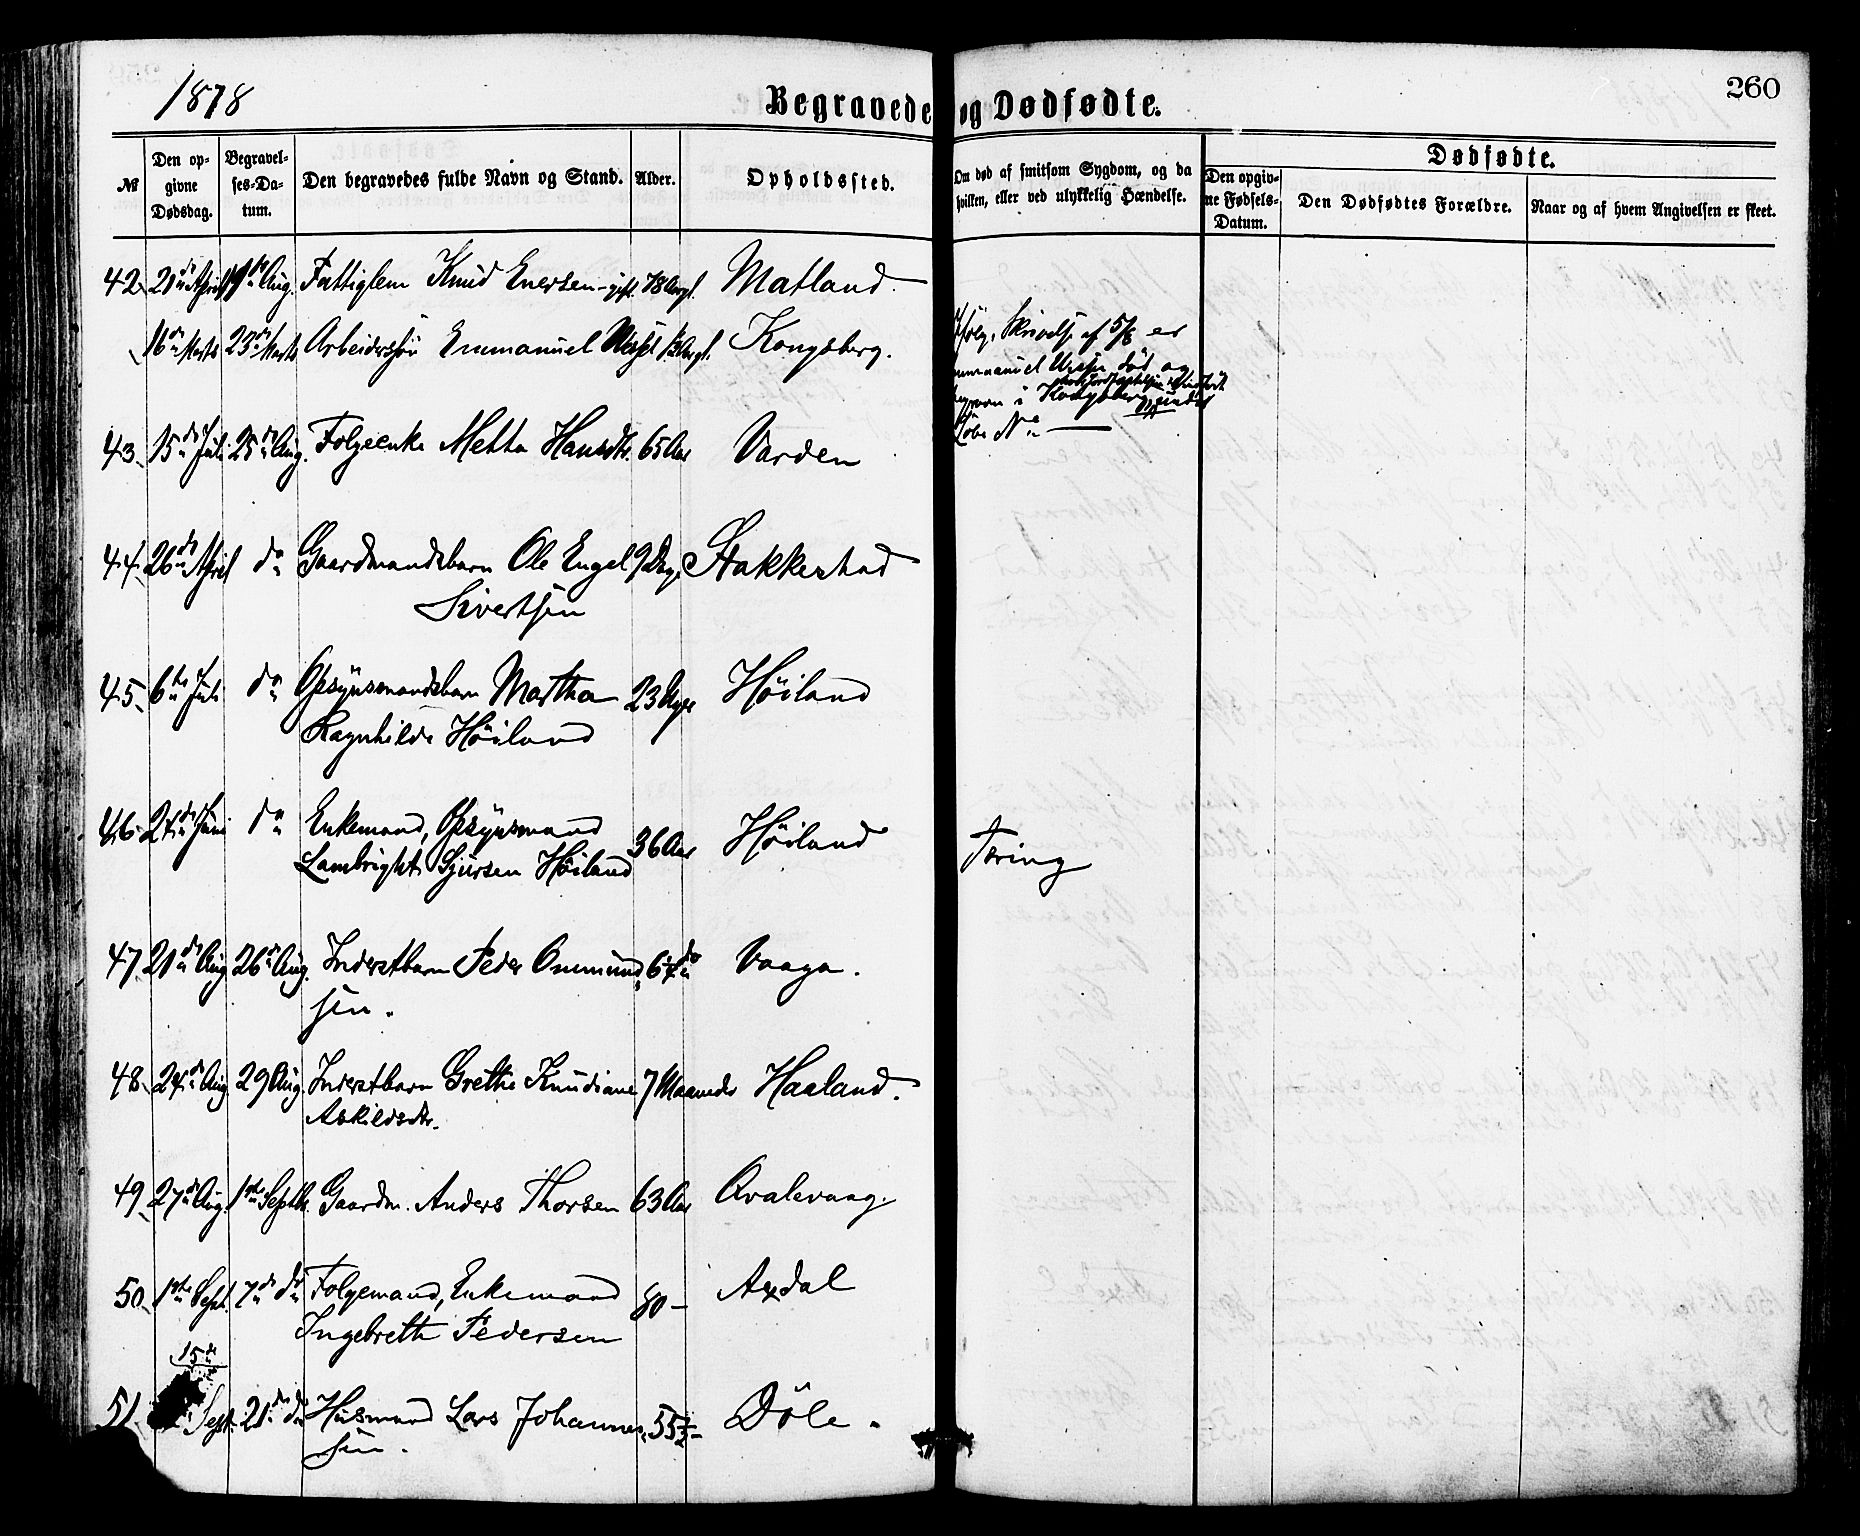 1878
Begravede og Dødfødte.
260
№
Den opgivne Dødsdag.
Begravelses-Datum.
Den begravedes fulde Navn og Stand.
Alder.
Opholdssted.
Om død af smitsom Sygdom, og da hvilken, eller ved ulykkelig Hændelse.
Dødfødte.
Den opgivne Fødsels-Datum.
Den Dødfødtes Forældre.
Naar og af hvem Angivelsen er skeet.
42. 21de April Aug. Fattiglem Knud Enersen - gift. 78 Aar gl. Matland.
16de Marts 23de Marts Arbeiderssøn Emmanuel Kongsberg.
Ifølg. Skrivelse af 5/6 er
Emmanuel død og
begraven i Kongsberg
Løbe No —
43. 15de Juli 25de Aug. Folgeenke Metta Hansdtr. 65 Aar Varden
44. 26de April do Gaardmandsbarn Ole Engel 9 Dage Stakkestad
Sivertsen
45. 6te Juli do Opsynsmandsbarn Martha 23 Uger Høiland
Ragnhilde Høiland
46. 24de Juni do Enkemand, Opsynsmand
Lambright Sjursen Høiland 36 Aar Høiland Tæring
47. 21de Aug. 26de Aug. Inderstbarn Peder Ommund- do Vaaga.
sen.
48. 24de Aug. 29 Aug. Inderstbarn Grethe Knudiane 7 Maaneder Haaland.
Askildsdtr.
49. 27de Aug. 1ste Septbr. Gaardm. Anders Thorsen 63 Aar Qvalevaag.
50. 1ste Sept. 7de do Folgemand, Enkemand 80 - Axdal
Ingebreth Pedersen
15de
51. Sept. 21de do Husmand Lars Johannes- 55½ - Døle.
sen.